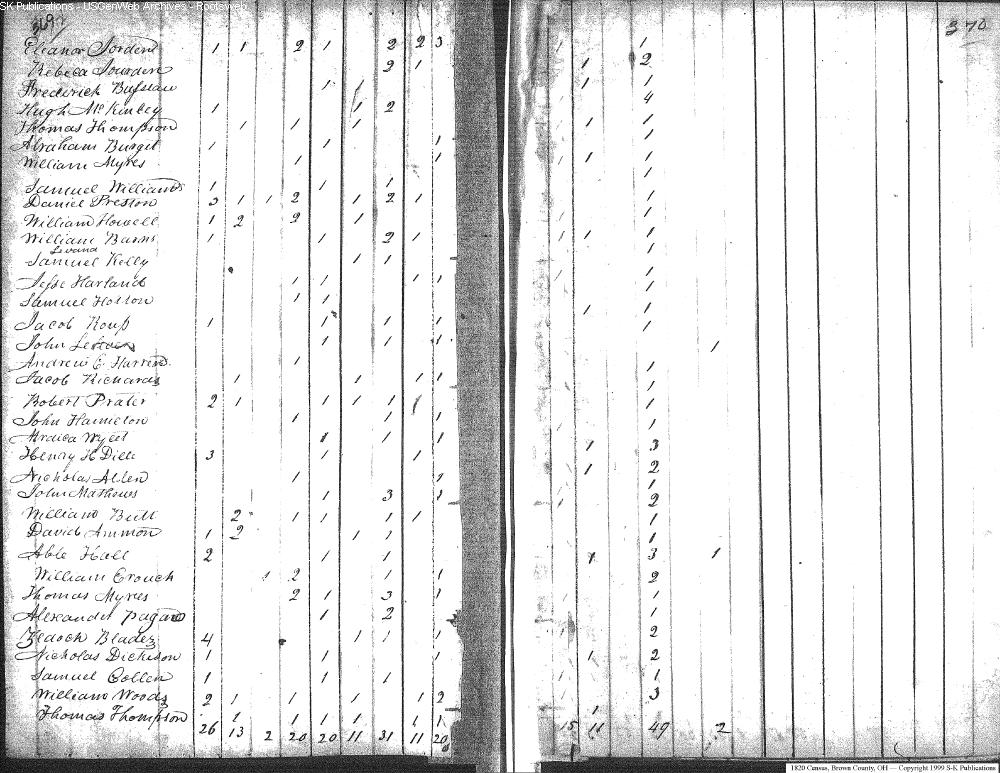 SK Publications - USGenWeb Archives - Rootsweb
369 370
Eleanor Jorden 1 1 2 1 2 2 3 1 1
Rebeca Jourden 2 1 1 2
Frederick 1 1 1 1
Hugh McKinley 1 1 2 4
Thomas Thompson 1 1 1 1 1
Abraham 1 1 1 1
William Myres 1 1 1 1
Samuel Williams 1 1 1 1
Daniel Preston 3 1 1 2 1 2 1 1
William Howell 1 2 2 1 1
William Barns 1 1 2 1 1 1 1
Samuel Kelly 1 1 1
Jesse Harland 1 1 1 1 1
Samuel Holton 1 1 1
Jacob Roush 1 1 1 1 1
John 1 1 1 1
Andrew E. 1 1
Jacob Richards 1 1 1 1 1
Robert Prater 2 1 1 1 1 1 1
John Hamilton 1 1 1 1
1 1 1 1 3
Henry H Dill 3 1 1 1 2
Nicholas Allen 1 1 1
John Mathews 1 3 1 1 2
William Butt 2 1 1 1 1 1
David Ammon 1 2 1 1 1
Able Hall 2 1 1 1 3 1
William Crouch 1 2 1 1 2
Thomas Myres 2 1 3 1 1
Alexander 1 2 1
Zedoch Bladez 4 1 1 1 2
Nicholas Dickison 1 1 1 1 2
Samuel Collen 1 1 1 1
William Woods 2 1 1 1 1 2 3
Thomas Thompson 1 1 1 1 1 1 1
26 13 2 20 20 11 31 11 20 15 11 49 2
1820 Census, Brown County, OH — Copyright 1999 S-K Publications